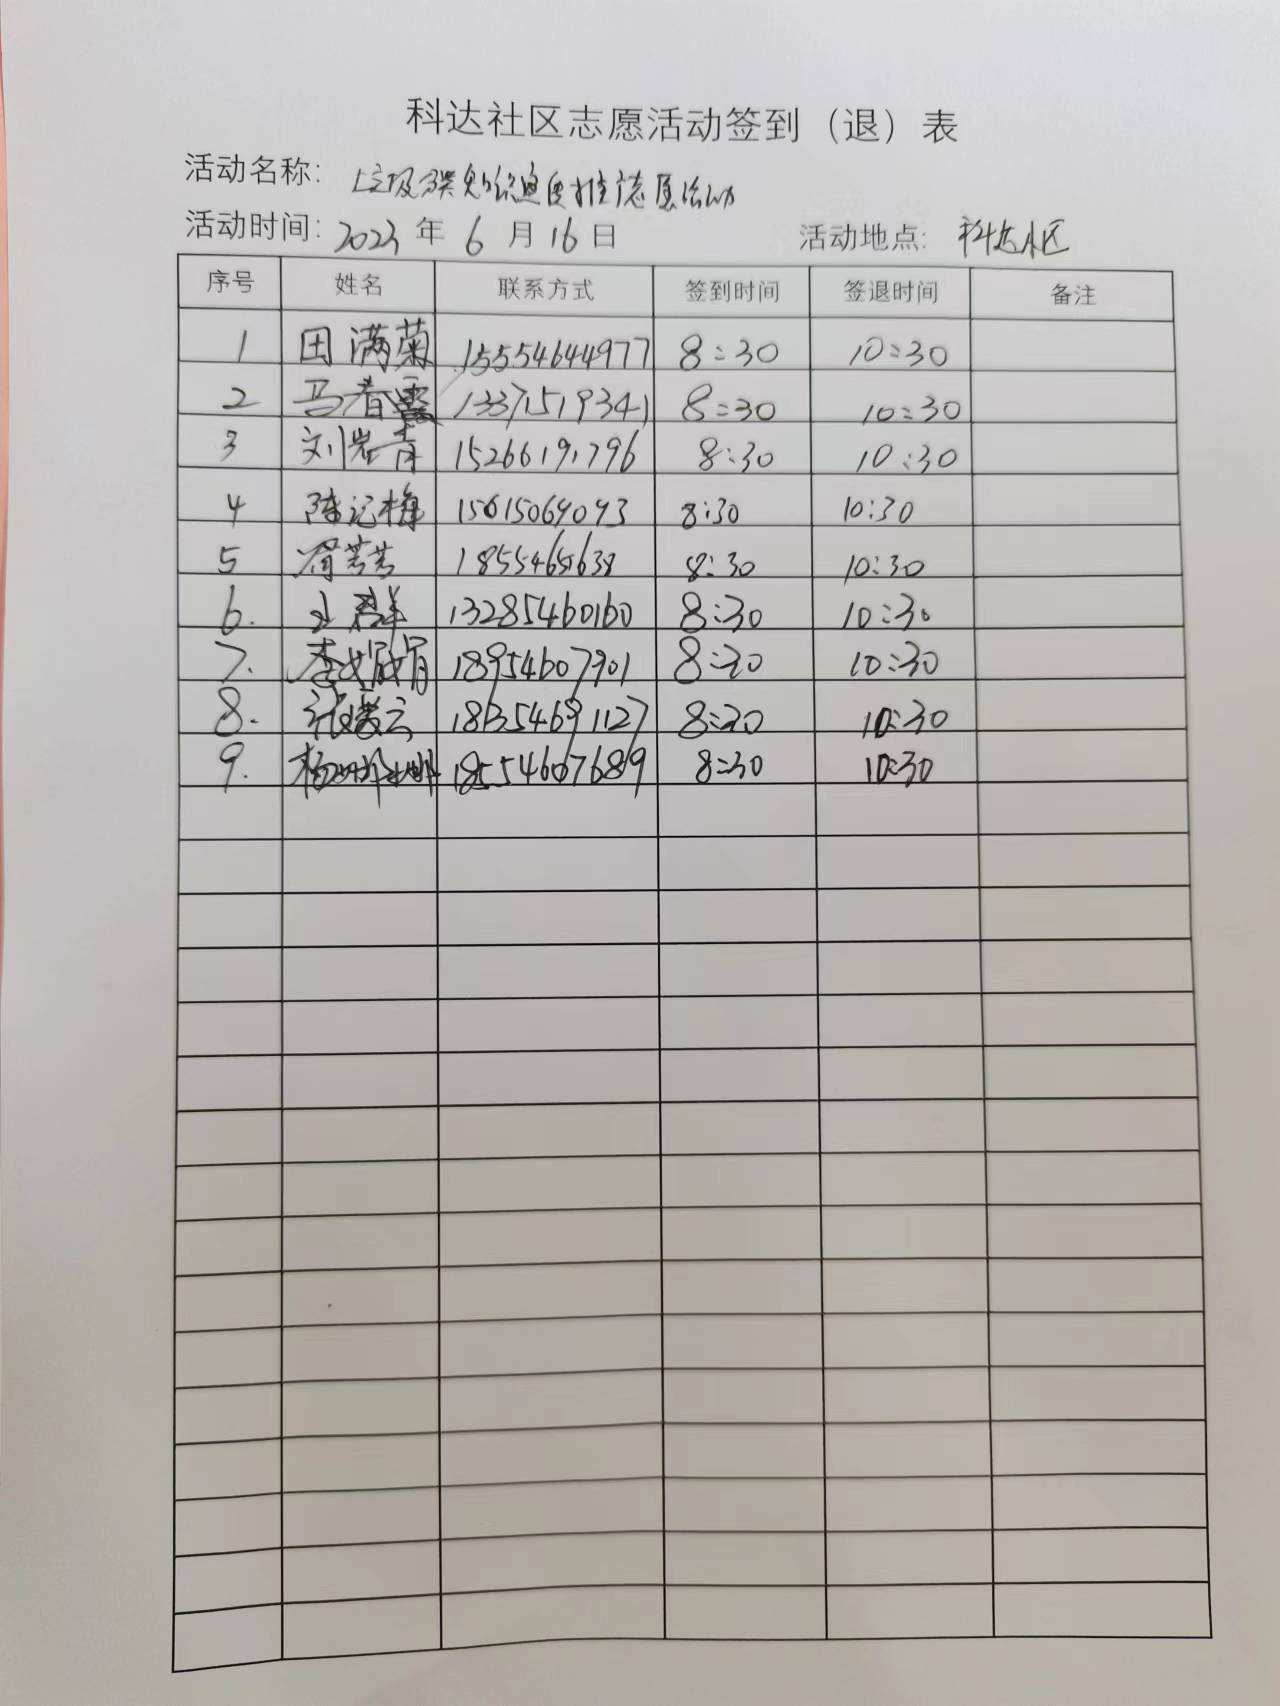 科达社区志愿活动签到（退）表
活动名称： 垃圾分类知识 推 志愿活动
活动时间：2023年6月16日 活动地点：科达小区
序号 姓名 联系方式 签到时间 签退时间 备注
1 田满菊 15554644977 8:30 10:30
2 马春霞 13371519341 8:30 10:30
3 刘岩青 15266191796 8:30 10:30
4 陈记梅 15615069093 8:30 10:30
5 芳芳 18554651638 8:30 10:30
6. 王群 13285460160 8:30 10:30
7. 李 娟 18954607901 8:30 10:30
8. 张 云 1127 8:30 10:30
9. 杨娜娜 18554607689 8:30 10:30